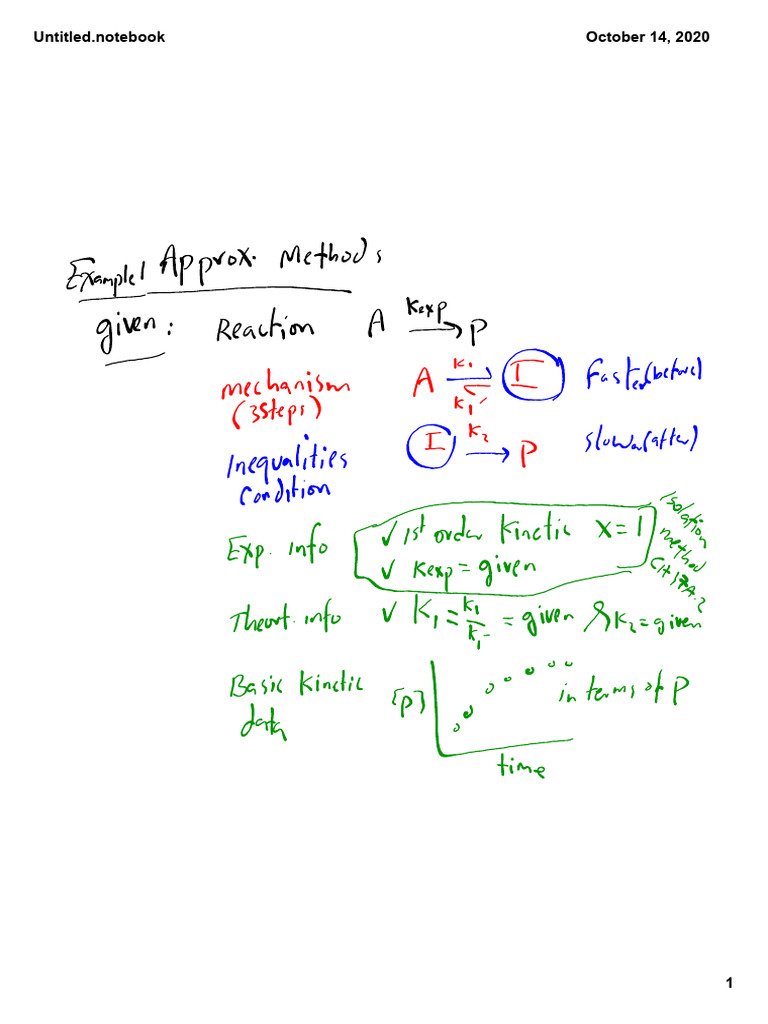 Untitled.notebook October 14, 2020
Example1 Approx. Methods
given: Reaction A Kexp → P
mechanism A K1 K1' I Faster (before)
(3steps) I K2 → P slower (after)
Inequalities
Condition
Exp. info ✓ 1st order Kinetic X=1
✓ Kexp = given
isolation
method
CH17A.2
Theort. info ✓ K1 = K1/K1- = given & K2 = given
Basic Kinetic [P] in terms of P
data
time
1